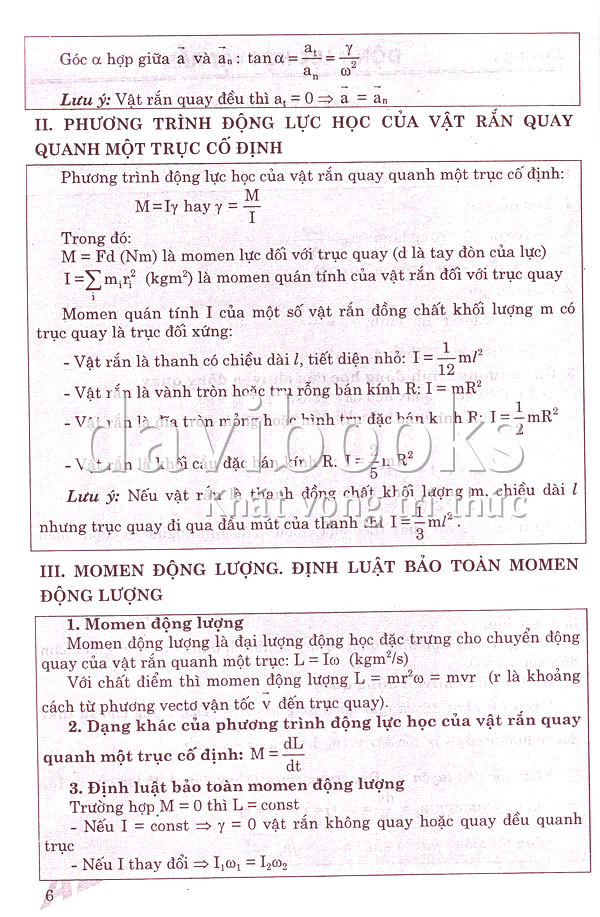 Góc α hợp giữa a⃗ và a⃗ₙ : tanα = aₜ/aₙ = γ/ω²
Lưu ý: Vật rắn quay đều thì aₜ = 0 ⇒ a⃗ = a⃗ₙ
II. PHƯƠNG TRÌNH ĐỘNG LỰC HỌC CỦA VẬT RẮN QUAY
QUANH MỘT TRỤC CỐ ĐỊNH
Phương trình động lực học của vật rắn quay quanh một trục cố định:
M = Iγ hay γ = M/I
Trong đó:
M = Fd (Nm) là momen lực đối với trục quay (d là tay đòn của lực)
I = ∑ᵢ mᵢrᵢ² (kgm²) là momen quán tính của vật rắn đối với trục quay
Momen quán tính I của một số vật rắn đồng chất khối lượng m có
trục quay là trục đối xứng:
- Vật rắn là thanh có chiều dài l, tiết diện nhỏ: I = 1/12 ml²
- Vật rắn là vành tròn hoặc trụ rỗng bán kính R: I = mR²
- Vật rắn là đĩa tròn mỏng hoặc hình trụ đặc bán kính R: I = 1/2 mR²
- Vật rắn là khối cầu đặc bán kính R: I = 2/5 mR²
davibooks
Khát vọng tri thức
Lưu ý: Nếu vật rắn là thanh đồng chất khối lượng m, chiều dài l
nhưng trục quay đi qua đầu mút của thanh thì I = 1/3 ml² .
III. MOMEN ĐỘNG LƯỢNG. ĐỊNH LUẬT BẢO TOÀN MOMEN
ĐỘNG LƯỢNG
1. Momen động lượng
Momen động lượng là đại lượng động học đặc trưng cho chuyển động
quay của vật rắn quanh một trục: L = Iω (kgm²/s)
Với chất điểm thì momen động lượng L = mr²ω = mvr (r là khoảng
cách từ phương vectơ vận tốc v⃗ đến trục quay).
2. Dạng khác của phương trình động lực học của vật rắn quay
quanh một trục cố định: M = dL/dt
3. Định luật bảo toàn momen động lượng
Trường hợp M = 0 thì L = const
- Nếu I = const ⇒ γ = 0 vật rắn không quay hoặc quay đều quanh
trục
- Nếu I thay đổi ⇒ I₁ω₁ = I₂ω₂
6